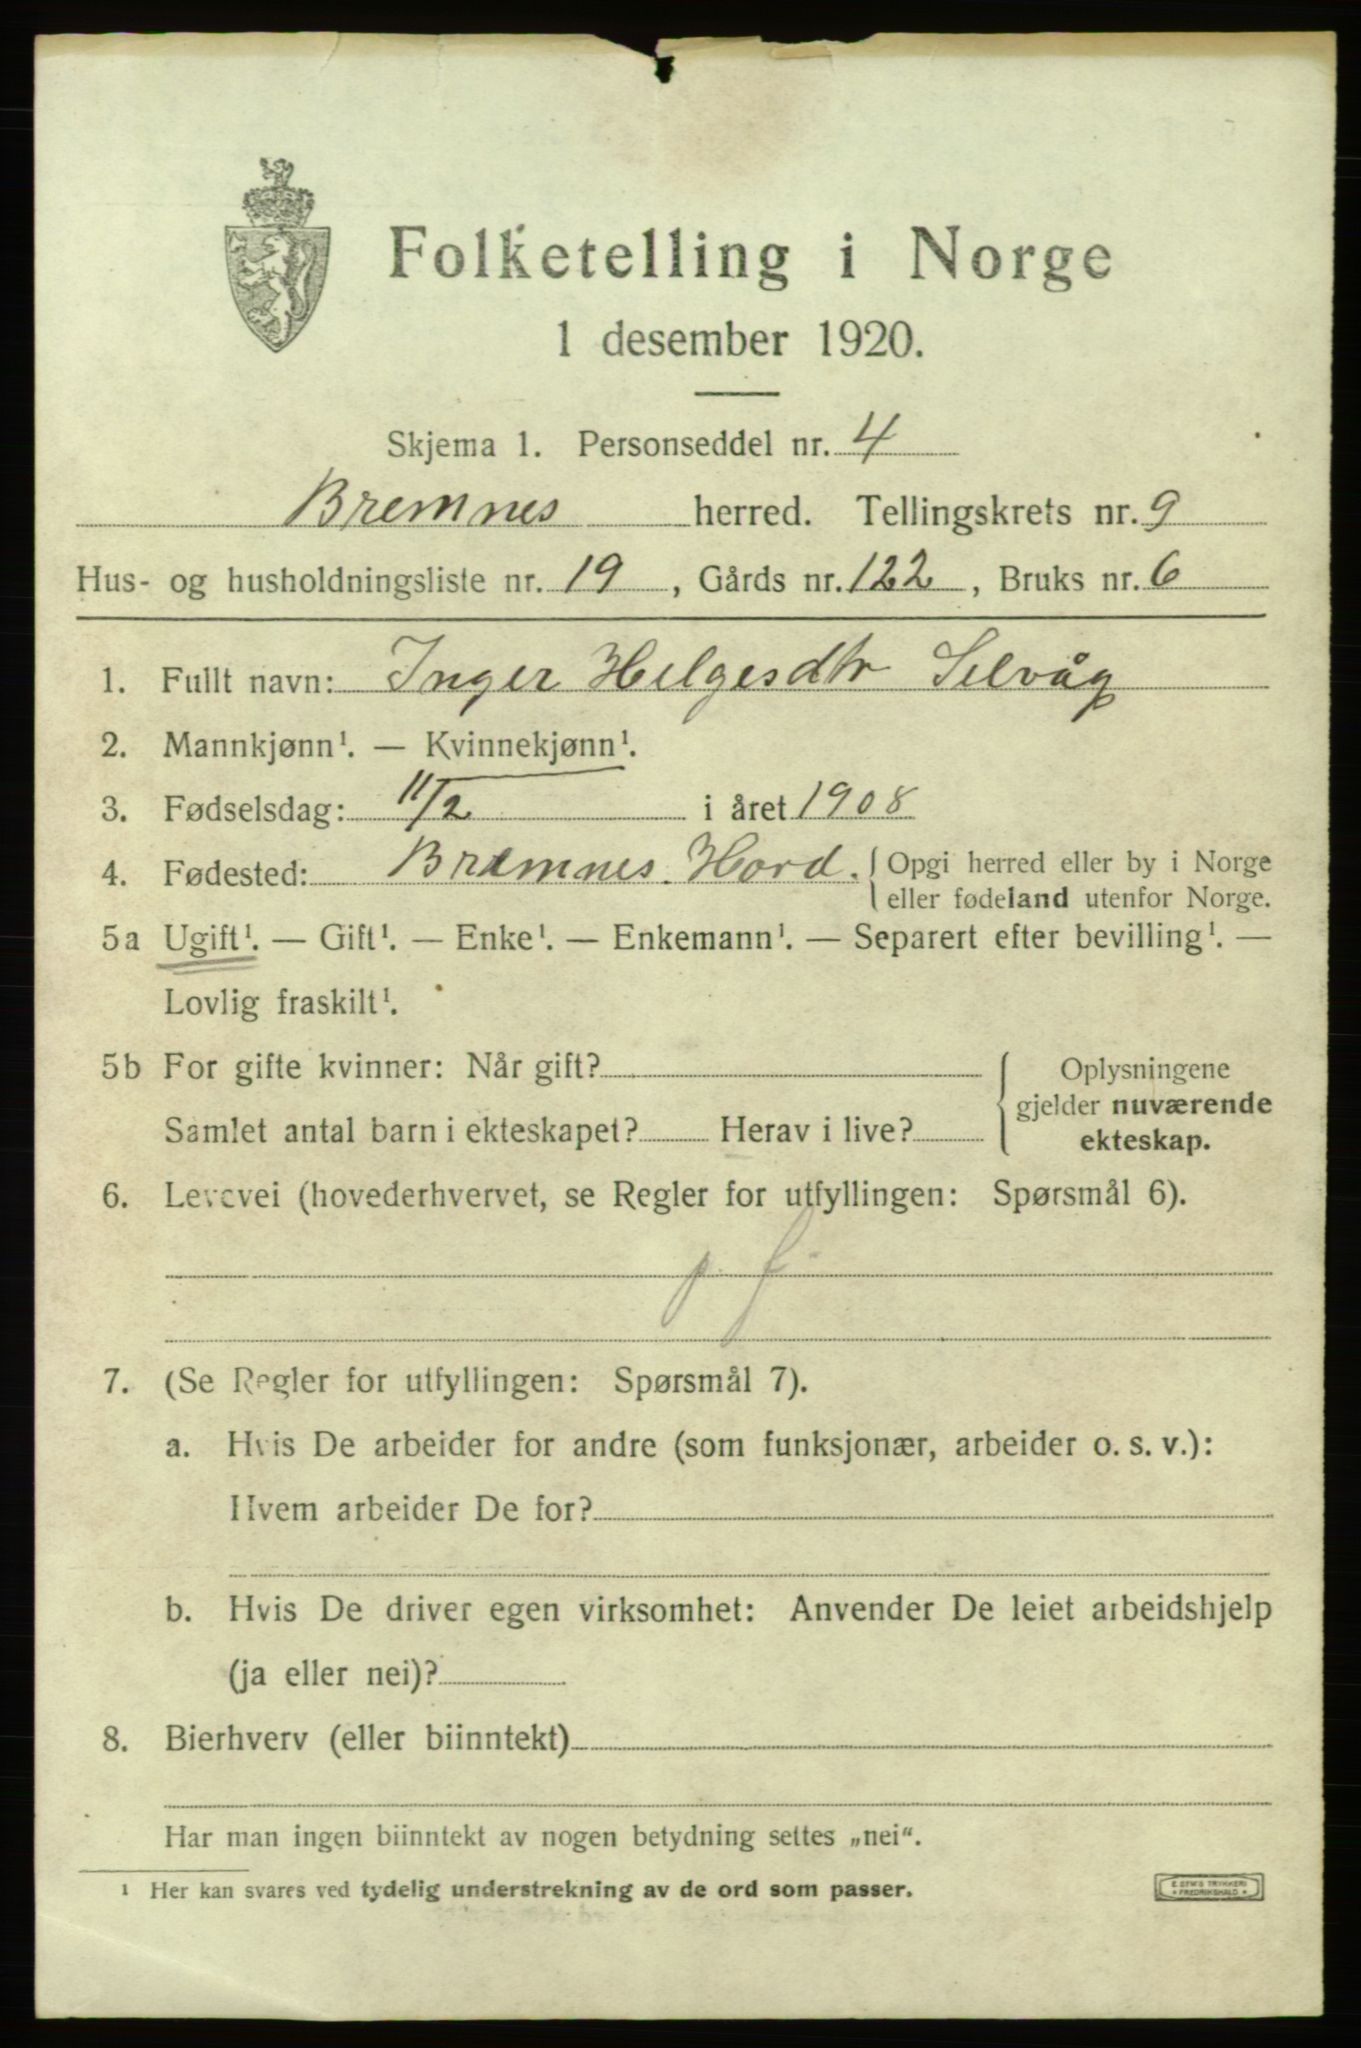 Folketelling i Norge
1 desember 1920.
Skjema 1. Personseddel nr. 4
Bremnes herred. Tellingskrets nr. 9
Hus- og husholdningsliste nr. 19, Gårds nr. 122, Bruks nr. 6
1. Fullt navn: Inger Helgesdtr Selvåg
2. Mannkjønn¹. — Kvinnekjønn¹.
3. Fødselsdag: 11/2 i året 1908
4. Fødested: Bremnes. Hord. { Opgi herred eller by i Norge
eller fødeland utenfor Norge.
5a Ugift¹. — Gift¹. — Enke¹. — Enkemann¹. — Separert efter bevilling¹. —
Lovlig fraskilt¹.
5b For gifte kvinner: Når gift?
Samlet antal barn i ekteskapet? Herav i live?
Oplysningene
gjelder nuværende
ekteskap.
6. Levevei (hovederhvervet, se Regler for utfyllingen: Spørsmål 6).
7. (Se Regler for utfyllingen: Spørsmål 7).
a. Hvis De arbeider for andre (som funksjonær, arbeider o. s. v.):
Hvem arbeider De for?
b. Hvis De driver egen virksomhet: Anvender De leiet arbeidshjelp
(ja eller nei)?
8. Bierhverv (eller biinntekt)
Har man ingen biinntekt av nogen betydning settes „nei".
¹ Her kan svares ved tydelig understrekning av de ord som passer.
TRYKKERI
FREDRIKSHALD